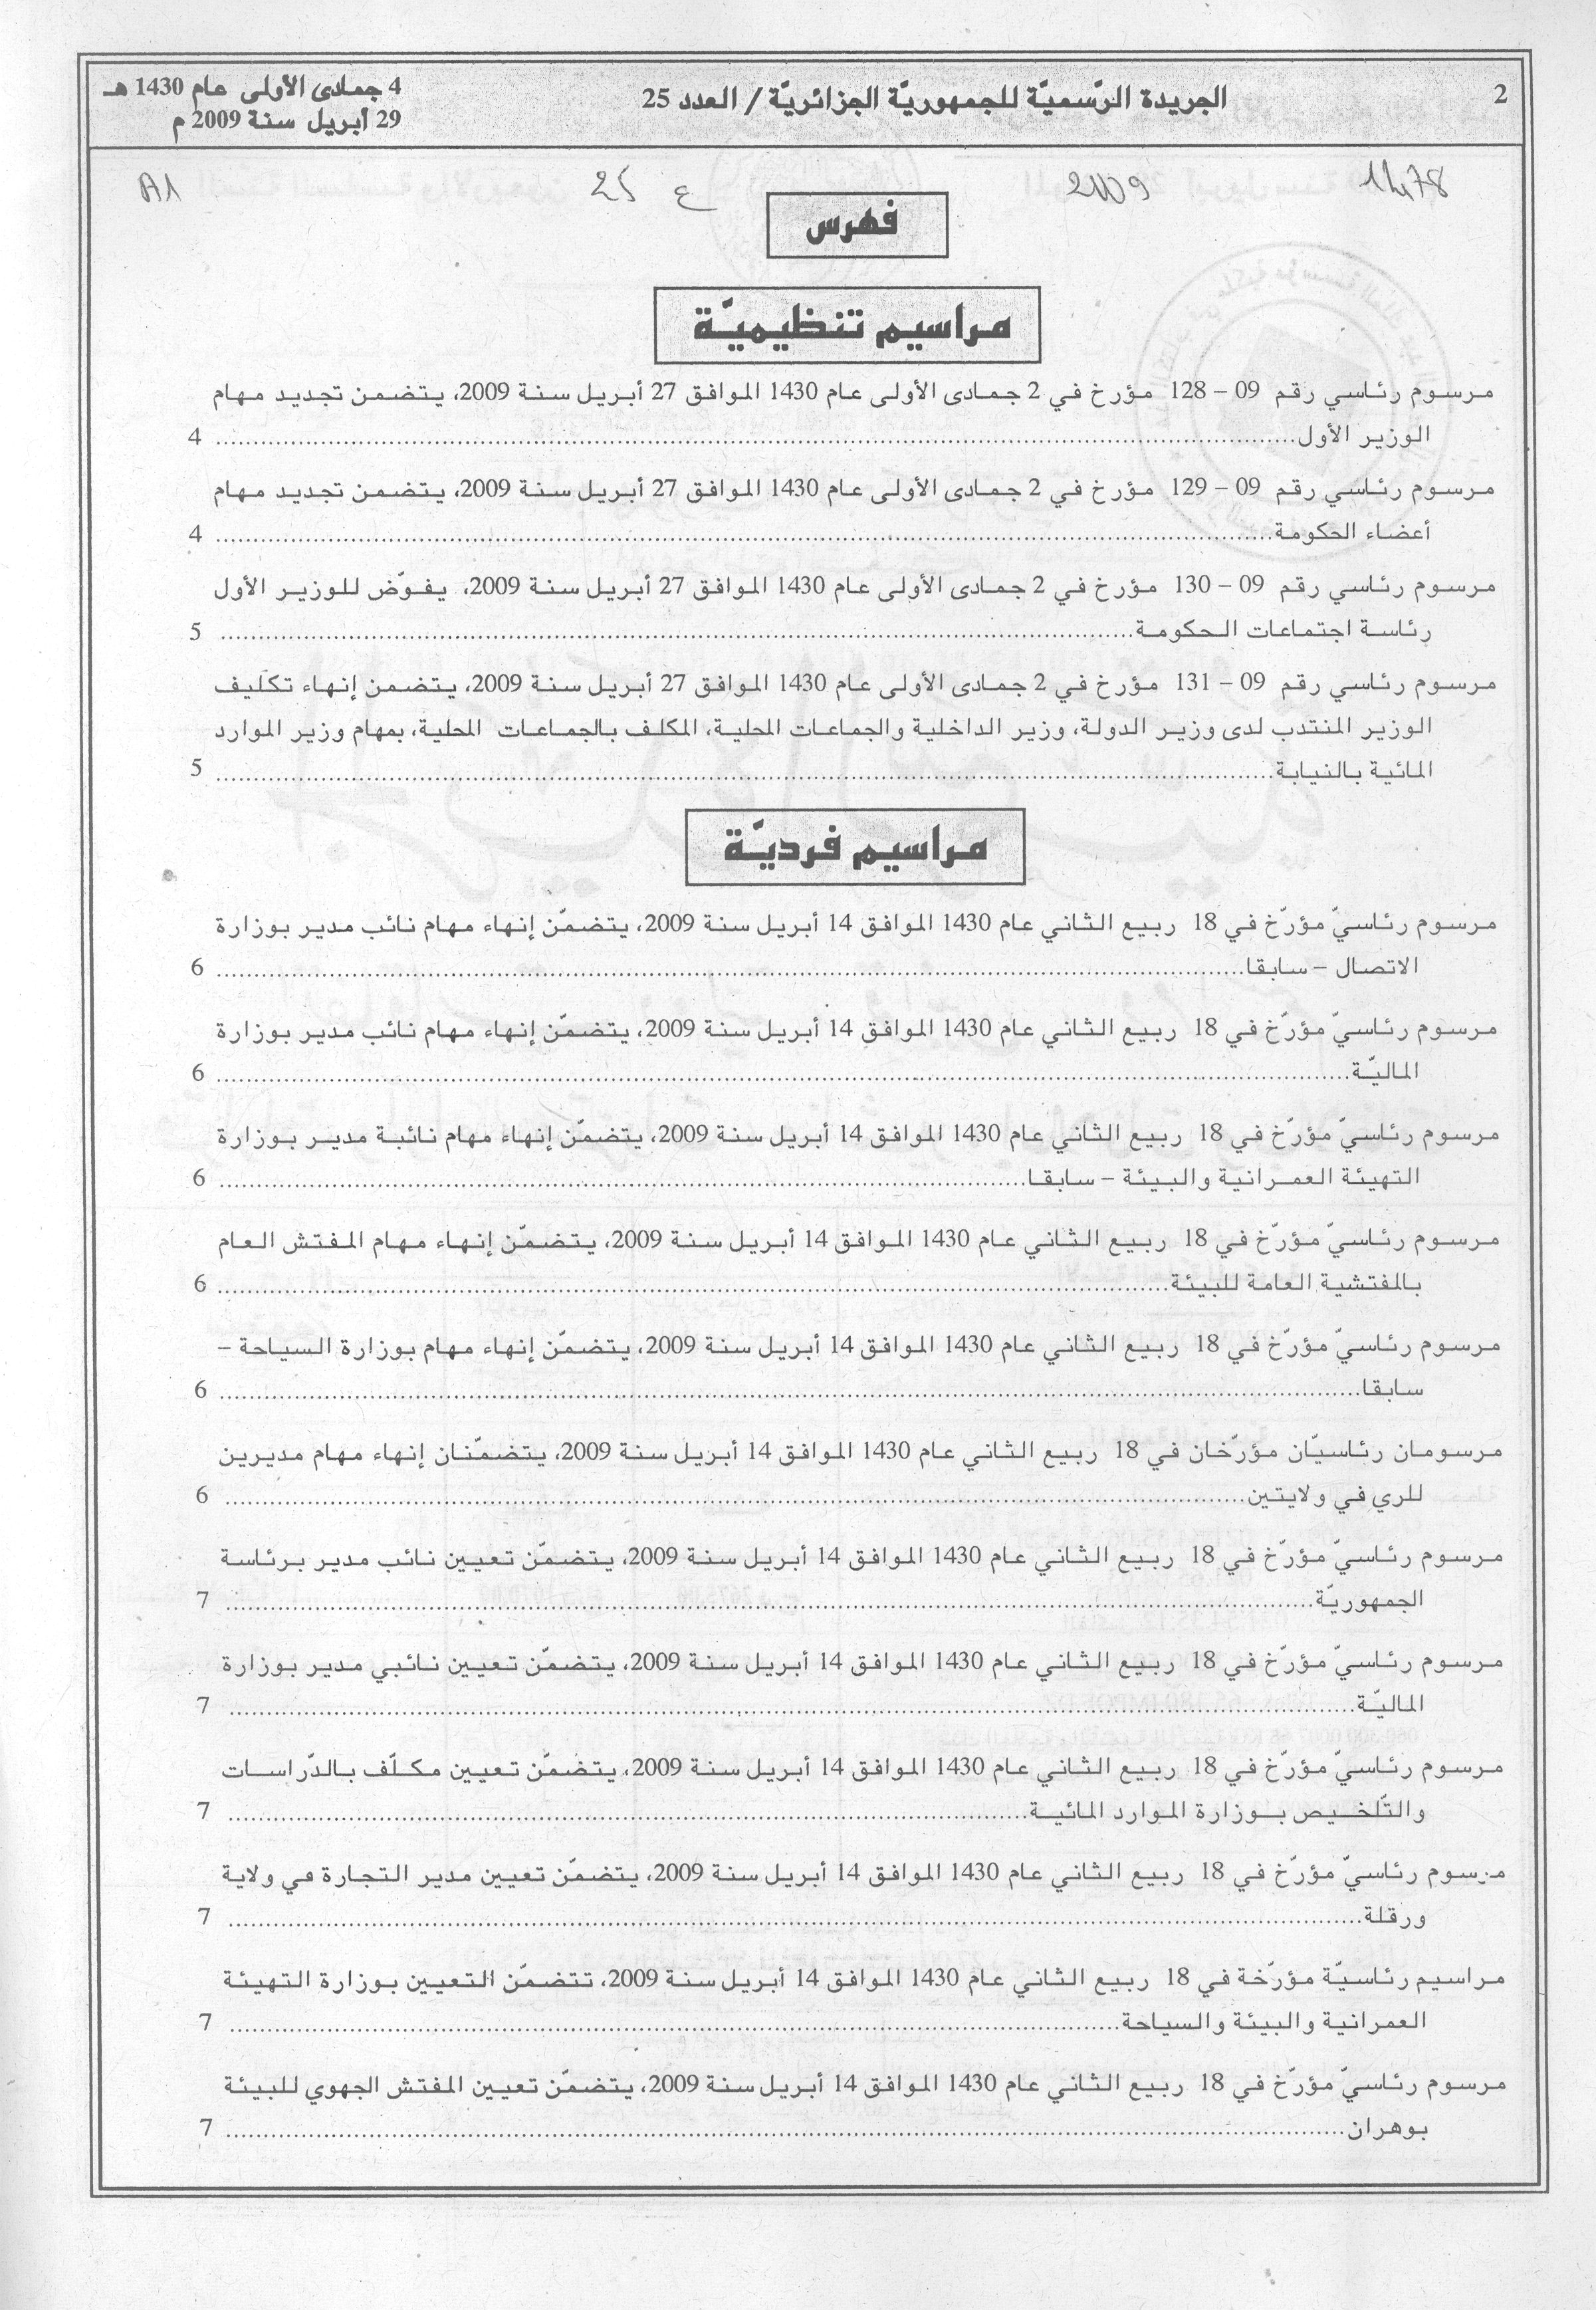 2
الجريدة الرّسميّة للجمهوريّة الجزائريّة / العدد 25
4 جمادى الأولى عام 1430 هـ
29 أبريل سنة 2009 م
1478 2009 ع 25 A1
فهرس
مراسيم تنظيميّة
مرسوم رئاسي رقم 09 – 128 مؤرخ في 2 جمادى الأولى عام 1430 الموافق 27 أبريل سنة 2009، يتضمن تجديد مهام
الوزير الأول ........ 4
مرسوم رئاسي رقم 09 – 129 مؤرخ في 2 جمادى الأولى عام 1430 الموافق 27 أبريل سنة 2009، يتضمن تجديد مهام
أعضاء الحكومة ........ 4
مرسوم رئاسي رقم 09 – 130 مؤرخ في 2 جمادى الأولى عام 1430 الموافق 27 أبريل سنة 2009، يفوّض للوزير الأول
رئاسة اجتماعات الحكومة ........ 5
مرسوم رئاسي رقم 09 – 131 مؤرخ في 2 جمادى الأولى عام 1430 الموافق 27 أبريل سنة 2009، يتضمن إنهاء تكليف
الوزير المنتدب لدى وزير الدولة، وزير الداخلية والجماعات المحلية، المكلف بالجماعات المحلية، بمهام وزير الموارد
المائية بالنيابة ........ 5
مراسيم فرديّة
مرسوم رئاسيّ مؤرّخ في 18 ربيع الثاني عام 1430 الموافق 14 أبريل سنة 2009، يتضمّن إنهاء مهام نائب مدير بوزارة
الاتصال – سابقا ........ 6
مرسوم رئاسيّ مؤرّخ في 18 ربيع الثاني عام 1430 الموافق 14 أبريل سنة 2009، يتضمّن إنهاء مهام نائب مدير بوزارة
الماليّة ........ 6
مرسوم رئاسيّ مؤرّخ في 18 ربيع الثاني عام 1430 الموافق 14 أبريل سنة 2009، يتضمّن إنهاء مهام نائبة مدير بوزارة
التهيئة العمرانية والبيئة – سابقا ........ 6
مرسوم رئاسيّ مؤرّخ في 18 ربيع الثاني عام 1430 الموافق 14 أبريل سنة 2009، يتضمّن إنهاء مهام المفتش العام
بالمفتشية العامة للبيئة ........ 6
مرسوم رئاسيّ مؤرّخ في 18 ربيع الثاني عام 1430 الموافق 14 أبريل سنة 2009، يتضمّن إنهاء مهام بوزارة السياحة –
سابقا ........ 6
مرسومان رئاسيّان مؤرّخان في 18 ربيع الثاني عام 1430 الموافق 14 أبريل سنة 2009، يتضمّنان إنهاء مهام مديرين
للري في ولايتين ........ 6
مرسوم رئاسيّ مؤرّخ في 18 ربيع الثاني عام 1430 الموافق 14 أبريل سنة 2009، يتضمّن تعيين نائب مدير برئاسة
الجمهوريّة ........ 7
مرسوم رئاسيّ مؤرّخ في 18 ربيع الثاني عام 1430 الموافق 14 أبريل سنة 2009، يتضمّن تعيين نائبي مدير بوزارة
الماليّة ........ 7
مرسوم رئاسيّ مؤرّخ في 18 ربيع الثاني عام 1430 الموافق 14 أبريل سنة 2009، يتضمّن تعيين مكلّف بالدّراسات
والتّلخيص بوزارة الموارد المائية ........ 7
مرسوم رئاسيّ مؤرّخ في 18 ربيع الثاني عام 1430 الموافق 14 أبريل سنة 2009، يتضمّن تعيين مدير التجارة في ولاية
ورقلة ........ 7
مراسيم رئاسيّة مؤرّخة في 18 ربيع الثاني عام 1430 الموافق 14 أبريل سنة 2009، تتضمّن التعيين بوزارة التهيئة
العمرانية والبيئة والسياحة ........ 7
مرسوم رئاسيّ مؤرّخ في 18 ربيع الثاني عام 1430 الموافق 14 أبريل سنة 2009، يتضمّن تعيين المفتش الجهوي للبيئة
بوهران ........ 7